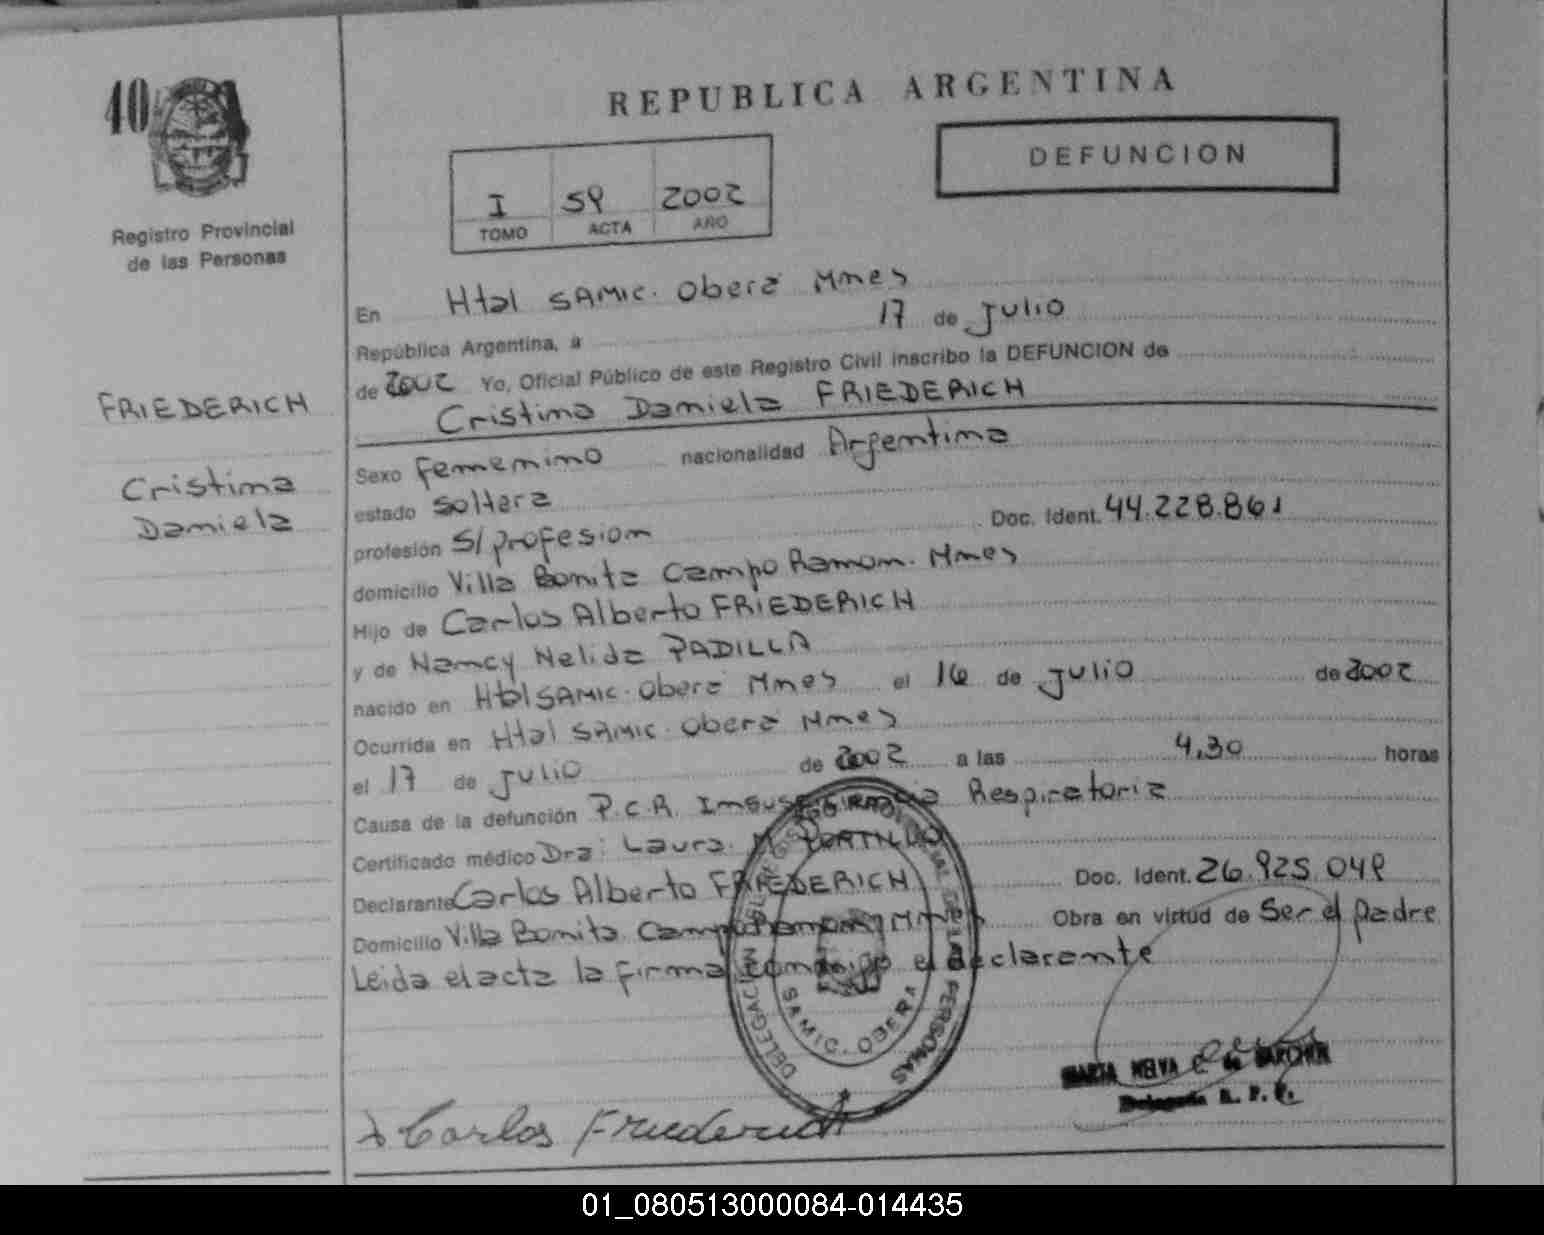 40
Registro Provincial
de las Personas
FRIEDERICH
Cristina
Daniela
REPUBLICA ARGENTINA
DEFUNCION
I 59 2002
TOMO ACTA AÑO
En Htal SAMIC. Oberá Mnes
República Argentina, a 17 de Julio
de 2002 Yo, Oficial Público de este Registro Civil inscribo la DEFUNCION de
Cristina Daniela FRIEDERICH
Sexo femenino nacionalidad Argentina
estado soltera
profesión S/profesion Doc. Ident. 44.228.861
domicilio Villa Bonita Campo Ramon. Mnes
Hijo de Carlos Alberto FRIEDERICH
y de Nancy Nelida PADILLA
nacido en Htal SAMIC. Oberá Mnes el 16 de Julio de 2002
Ocurrida en Htal SAMIC. Oberá Mnes
el 17 de Julio de 2002 a las 4,30 horas
Causa de la defunción P.C.R. Respiratoria
Certificado médico Dra: Laura. M. PORTILLO
Declarante Carlos Alberto FRIEDERICH Doc. Ident. 26.925.049
Domicilio Villa Bonita Campo Ramon Mnes Obra en virtud de Ser el padre
Leida el acta la firma conmigo el declarante
DELEGACION DEL REGISTRO PROVINCIAL DE LAS PERSONAS
SAMIC. OBERA
MARTA de
Delegada R. P. P.
Carlos Friederich
01_080513000084-014435